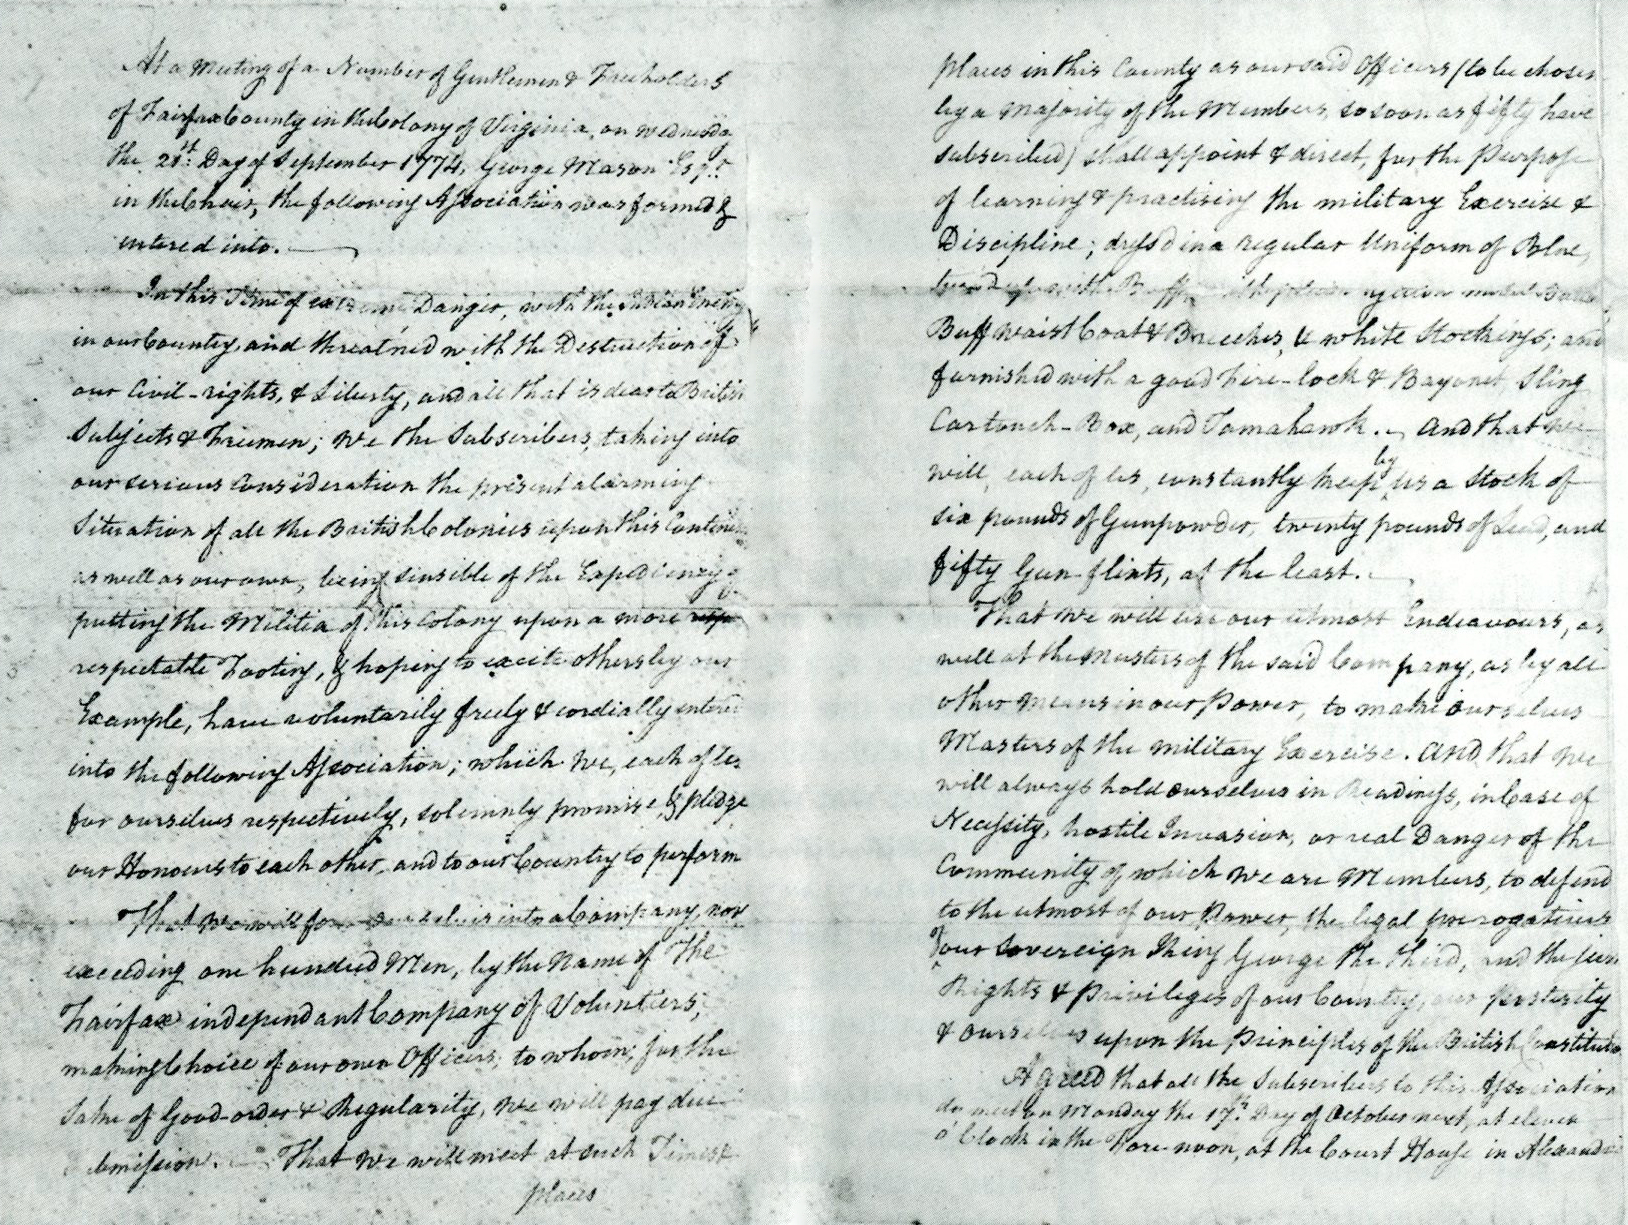 At a Meeting of a Number of Gentlemen & Freeholders
of Fairfax County in the Colony of Virginia, on Wednesday
the 21st. Day of September 1774, George Mason Esqr.
in the Chair, the following Association was formed &
entered into.
In this Time of extreme Danger, with the Indian Enemy
in our Country, and threat'ned with the Destruction of
our Civil-rights, & Liberty, and all that is dear to British
Subjects & Freemen; we the Subscribers, taking into
our serious Consideration the present alarming
Situation of all the British Colonies upon this Continent
as well as our own, being sensible of the Expediency of
putting the Militia of this Colony upon a more
respectable Footing, & hoping to excite others by our
Example, have voluntarily freely & cordially entered
into the following Association; which we, each of us
for ourselves respectively, solemnly promise, & pledge
our Honours to each other, and to our Country to perform
That we will form ourselves into a Company, not
exceeding one hundred Men, by the Name of The
Fairfax independant Company of Voluntiers;
making Choice of our own Officers; to whom, for the
Sake of Good-order & Regularity, we will pay due
submission. That we will meet at such Times &
places
places in this County as our said Officers (to be chosen
by a Majority of the Members, so soon as fifty have
subscribed) shall appoint & direct, for the Purpose
of learning & practising the military Exercise &
Discipline; dress'd in a regular Uniform of Blue,
turn'd up with Buff; with plain yellow metal Buttons
Buff waist Coat & Breeches, & white Stockings; and
furnished with a good fire-lock & Bayonet, Sling
Cartouch-Box, and Tomahawk. And that we
will, each of us, constantly keep by us a Stock of
six pounds of Gunpowder, twenty pounds of Lead, and
fifty Gun-flints, at the least.
That we will use our utmost Endeavours, as
well at the Musters of the said Company, as by all
other Means in our Power, to make ourselves
Masters of the military Exercise. And that we
will always hold ourselves in Readiness, in Case of
Necessity, hostile Invasion, or real Danger of the
Community of which we are Members, to defend
to the utmost of our Power, the legal prerogatives
of our Sovereign King George the third, and the just
Rights & Privileges of our Country, our posterity
& ourselves upon the Principles of the British Constitution
Agreed that all the Subscribers to this Association
do meet on Monday the 17th. Day of October next, at eleven
o'Clock in the Fore-noon, at the Court House in Alexandria